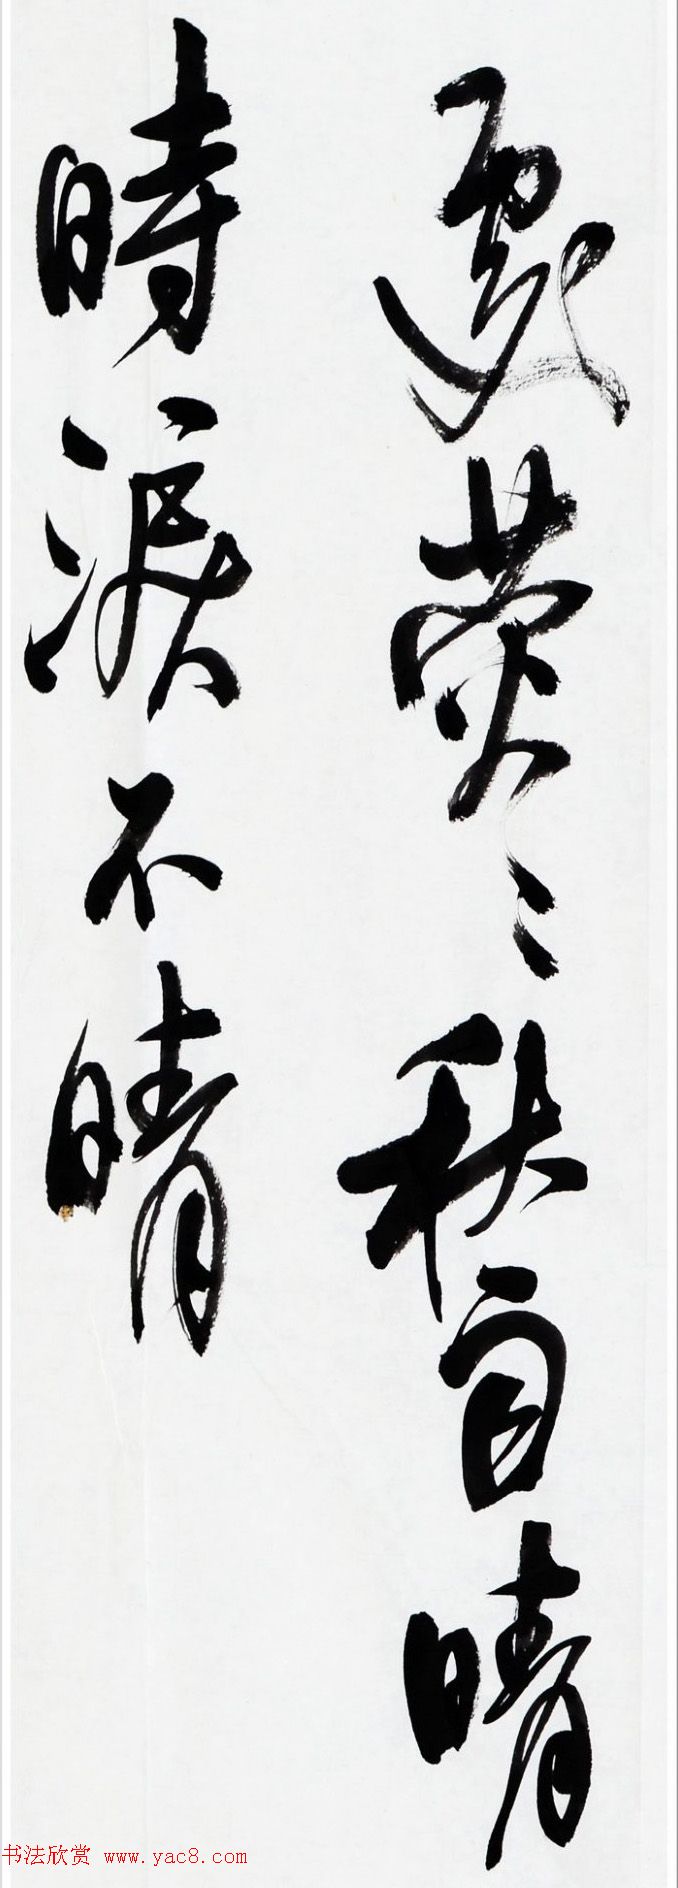 荧々秋自晴
時淚不晴
书法欣赏 www.yac8.com